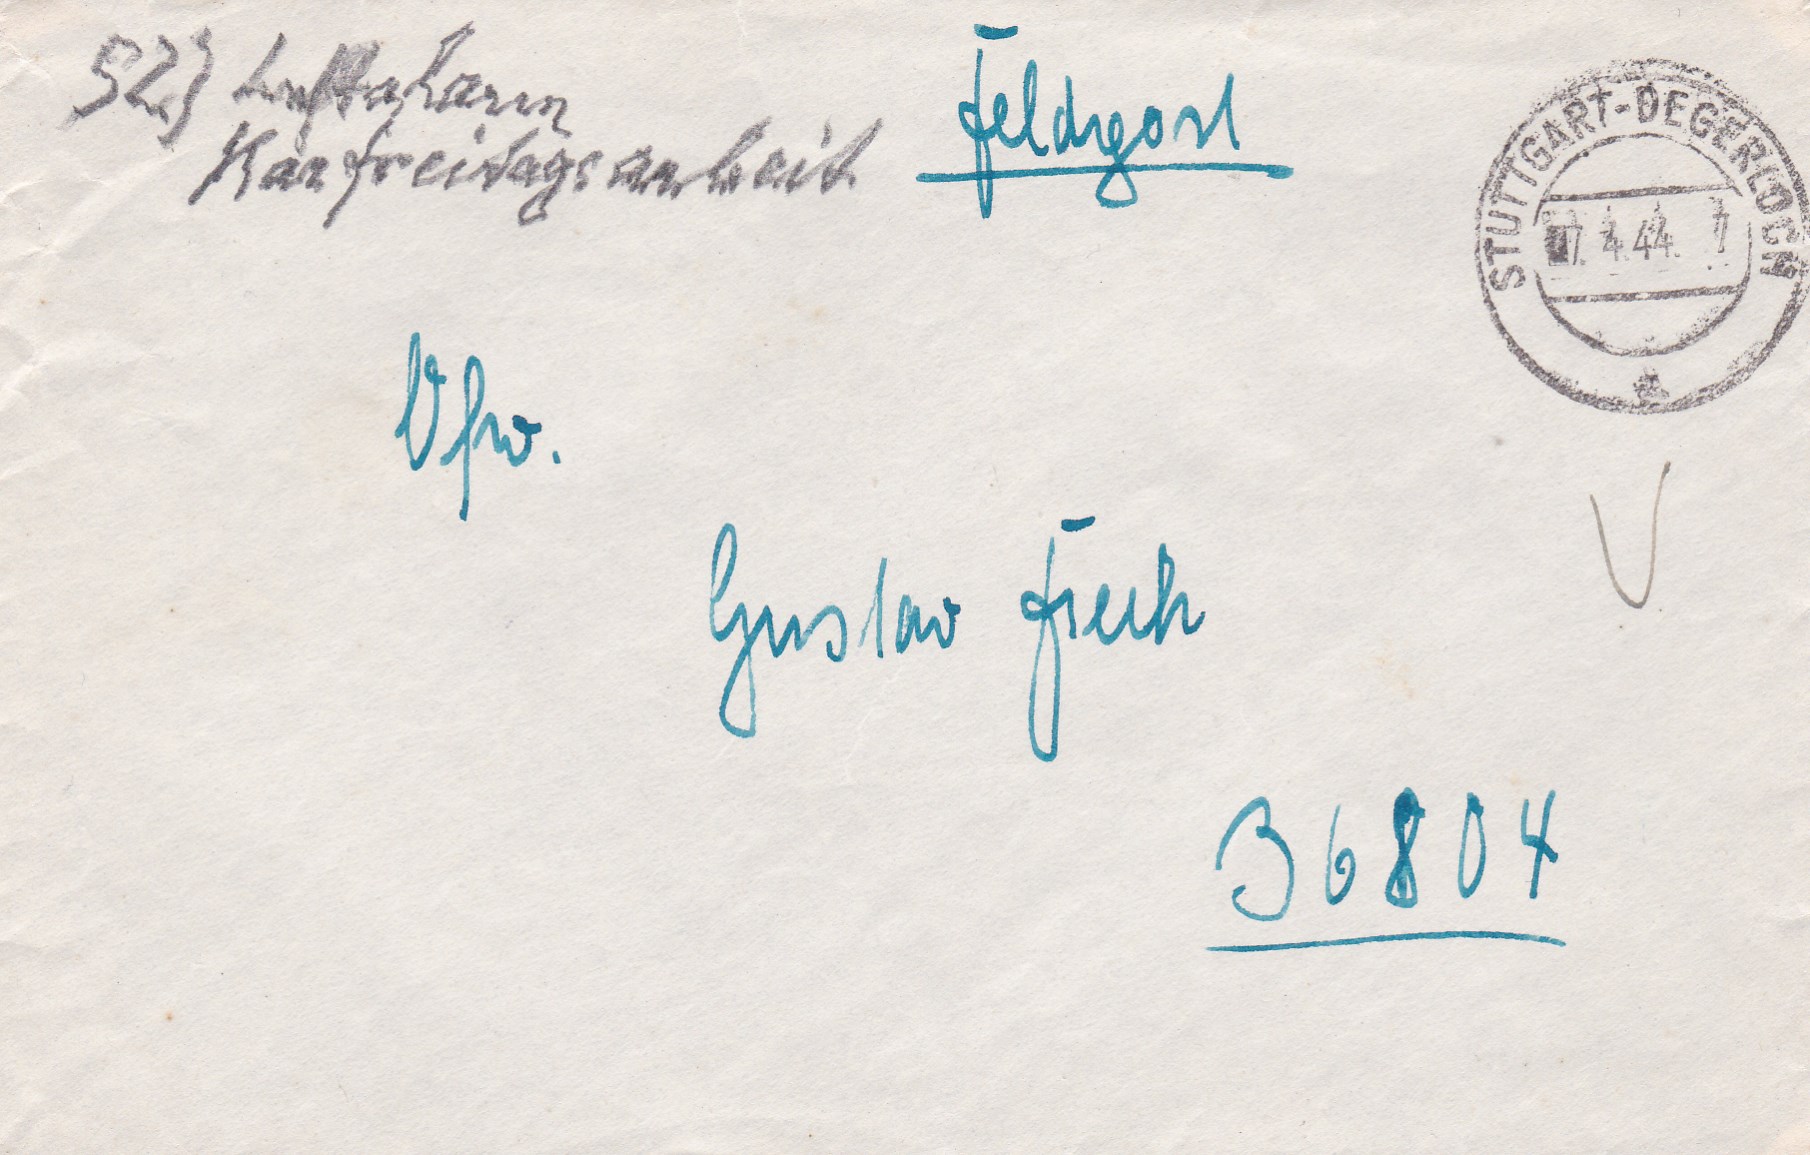 523 Luftalarm
Karfreitagsarbeit
Feldpost
STUTTGART-DEGERLOCH
7.4.44. 7
a
Ofw.
Gustav Frech
36804